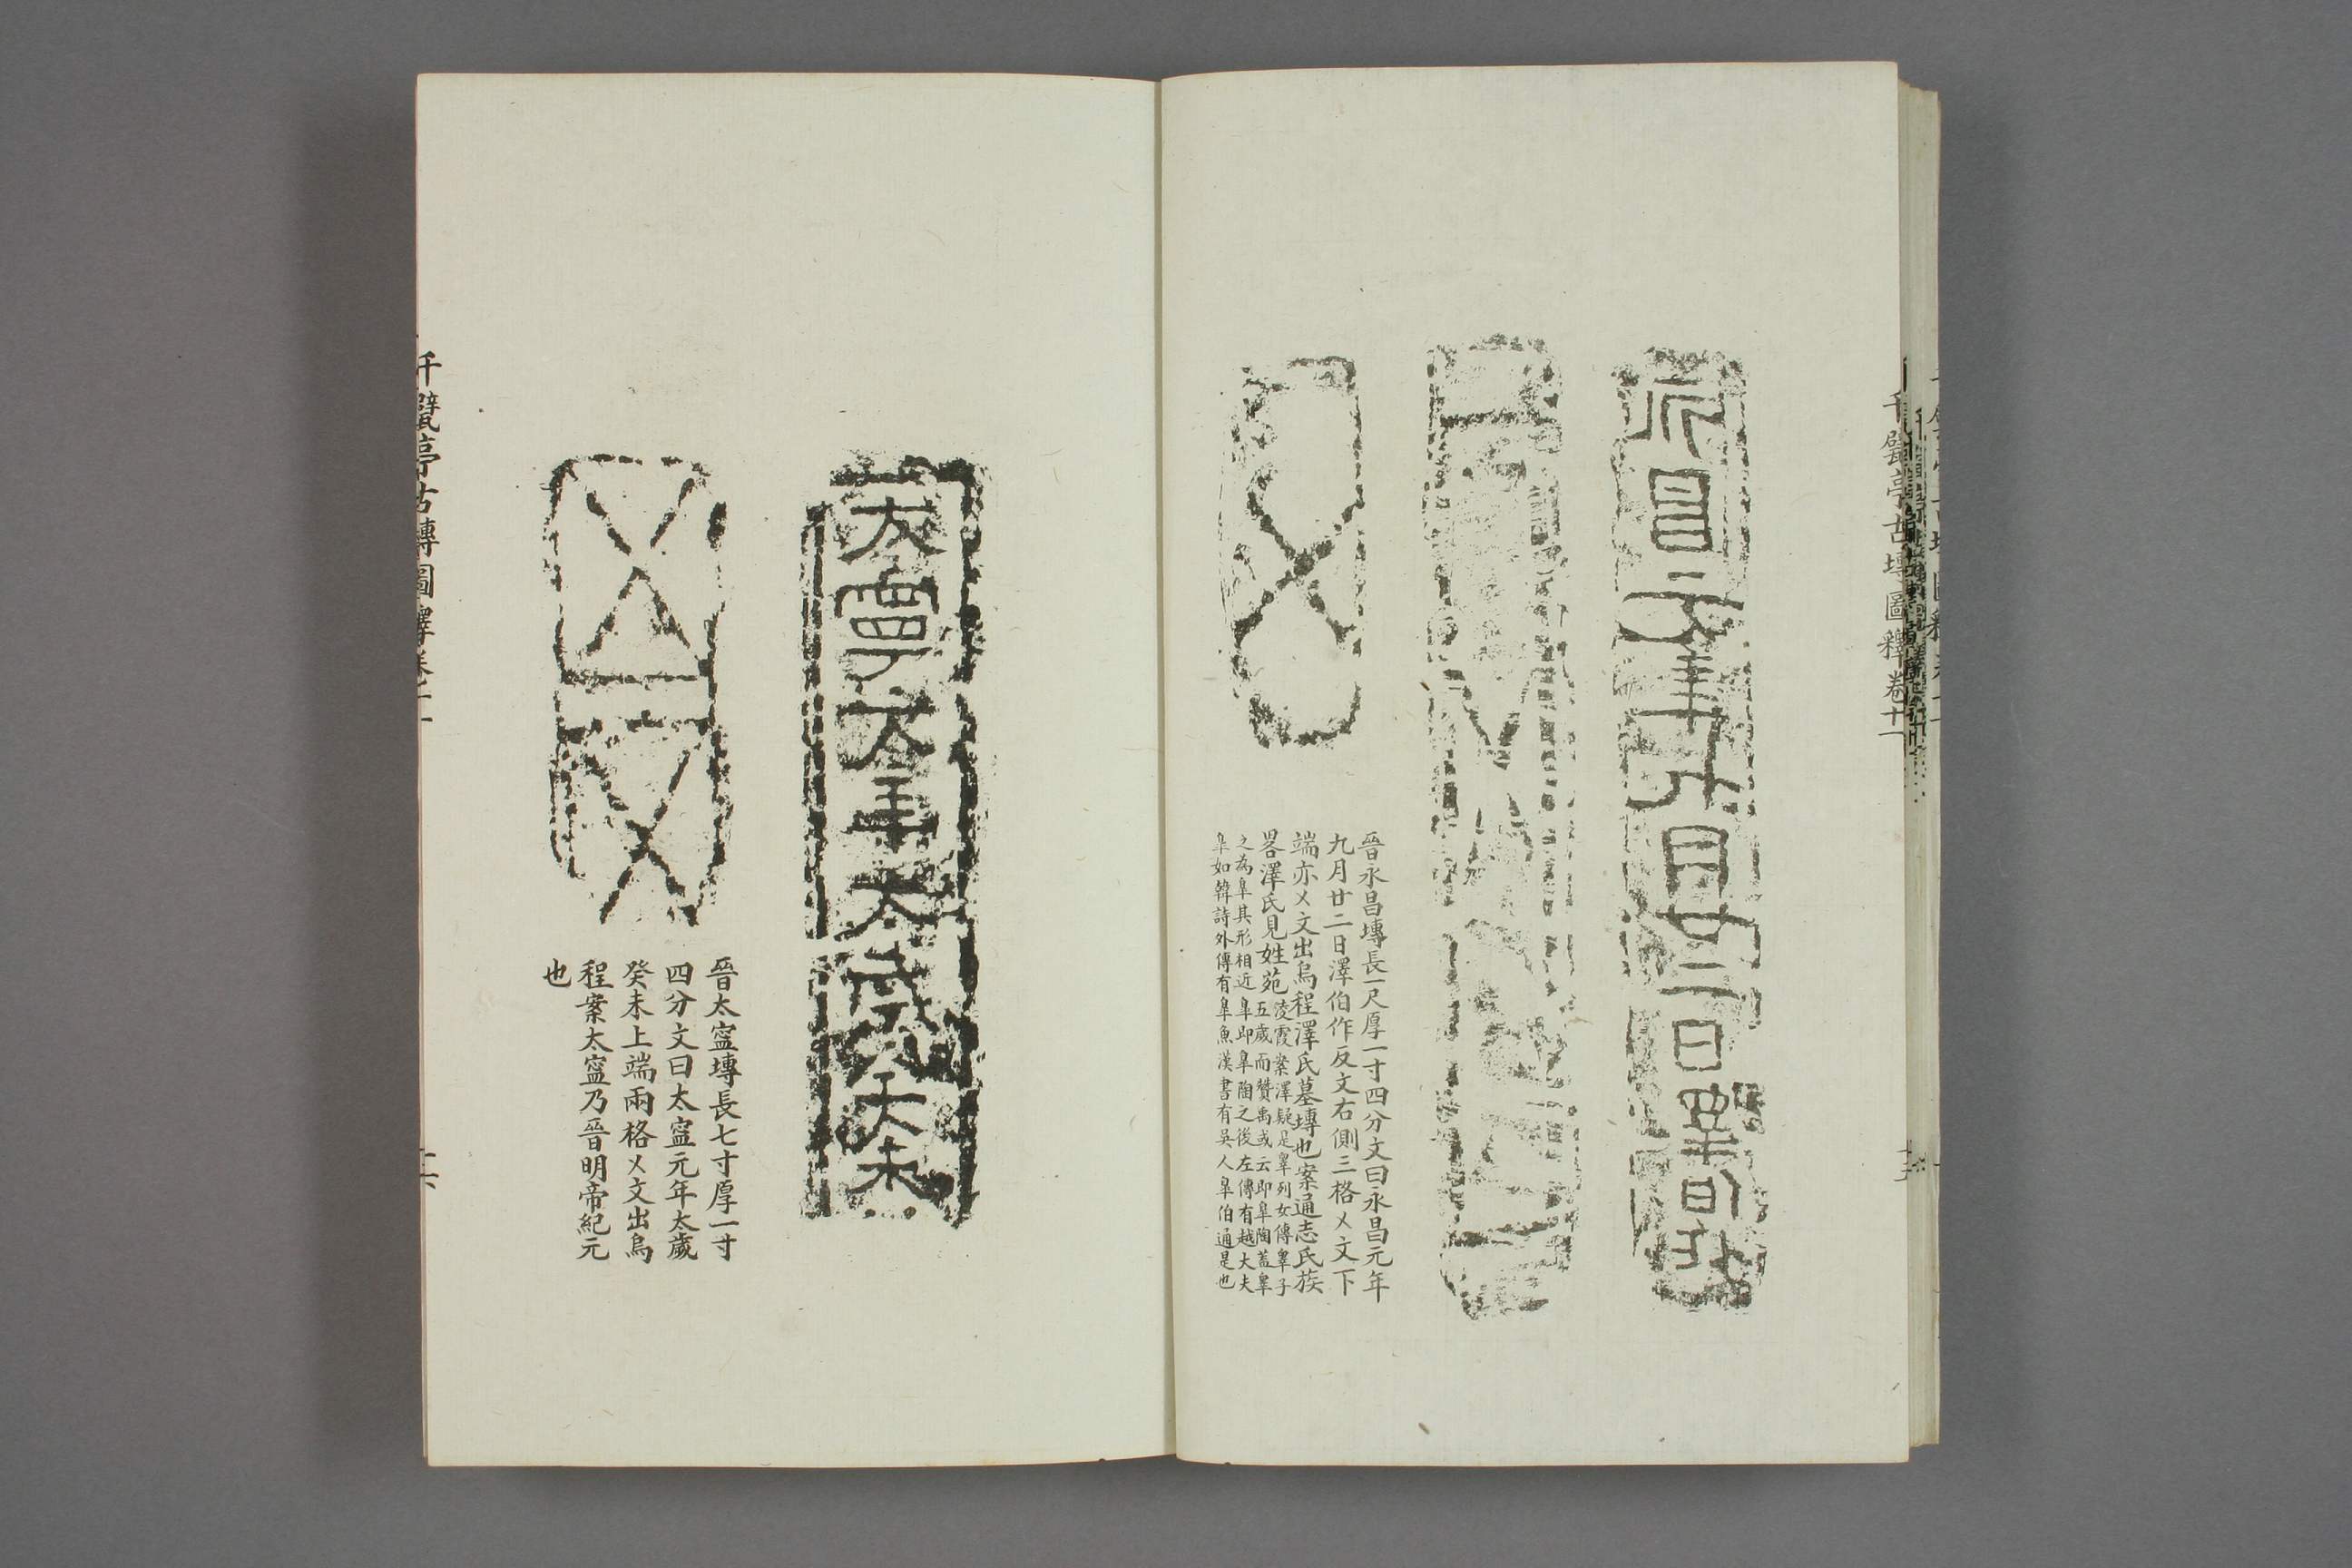 千甓亭古塼圖釋卷十一
永昌元年九月廿二日澤伯作
晉永昌塼長一尺厚一寸四分文曰永昌元年
九月廿二日澤伯作反文右側三格㐅文下
端亦㐅文出烏程澤氏墓塼也案通志氏族
畧澤氏見姓苑淩霞案澤疑是睪列女傳睪子
五歲而贊禹或云即皐陶蓋睪
之為皐其形相近皐即皐陶之後左傳有越大夫
皐如韓詩外傳有皐魚漢書有吳人皐伯通是也
太寧元年太歲癸未
晉太寍塼長七寸厚一寸
四分文曰太寍元年太歲
癸未上端兩格㐅文出烏
程案太寍乃晉明帝紀元
也
千甓亭古塼圖釋卷十一
十六